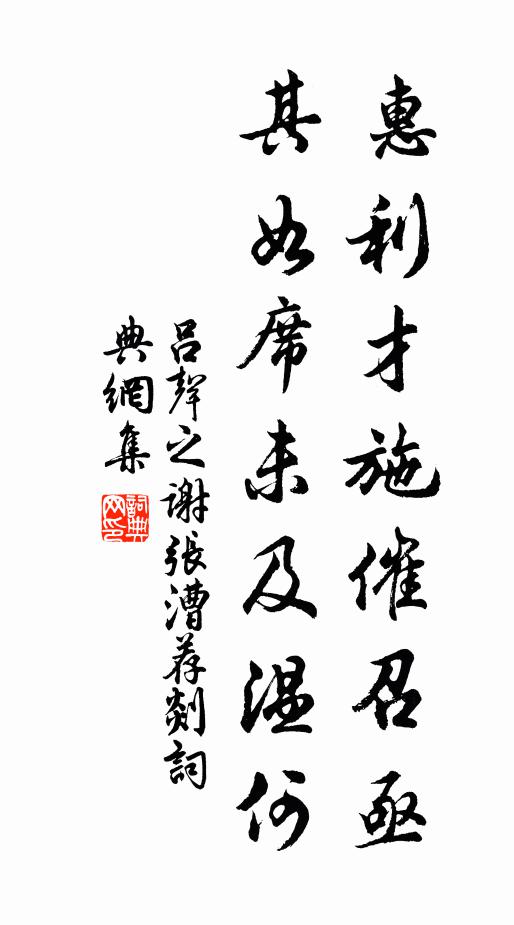 惠利才施催召亟
其如席未及温何
吕聲之谢張漕荐剡詞
典網集
詞典网印